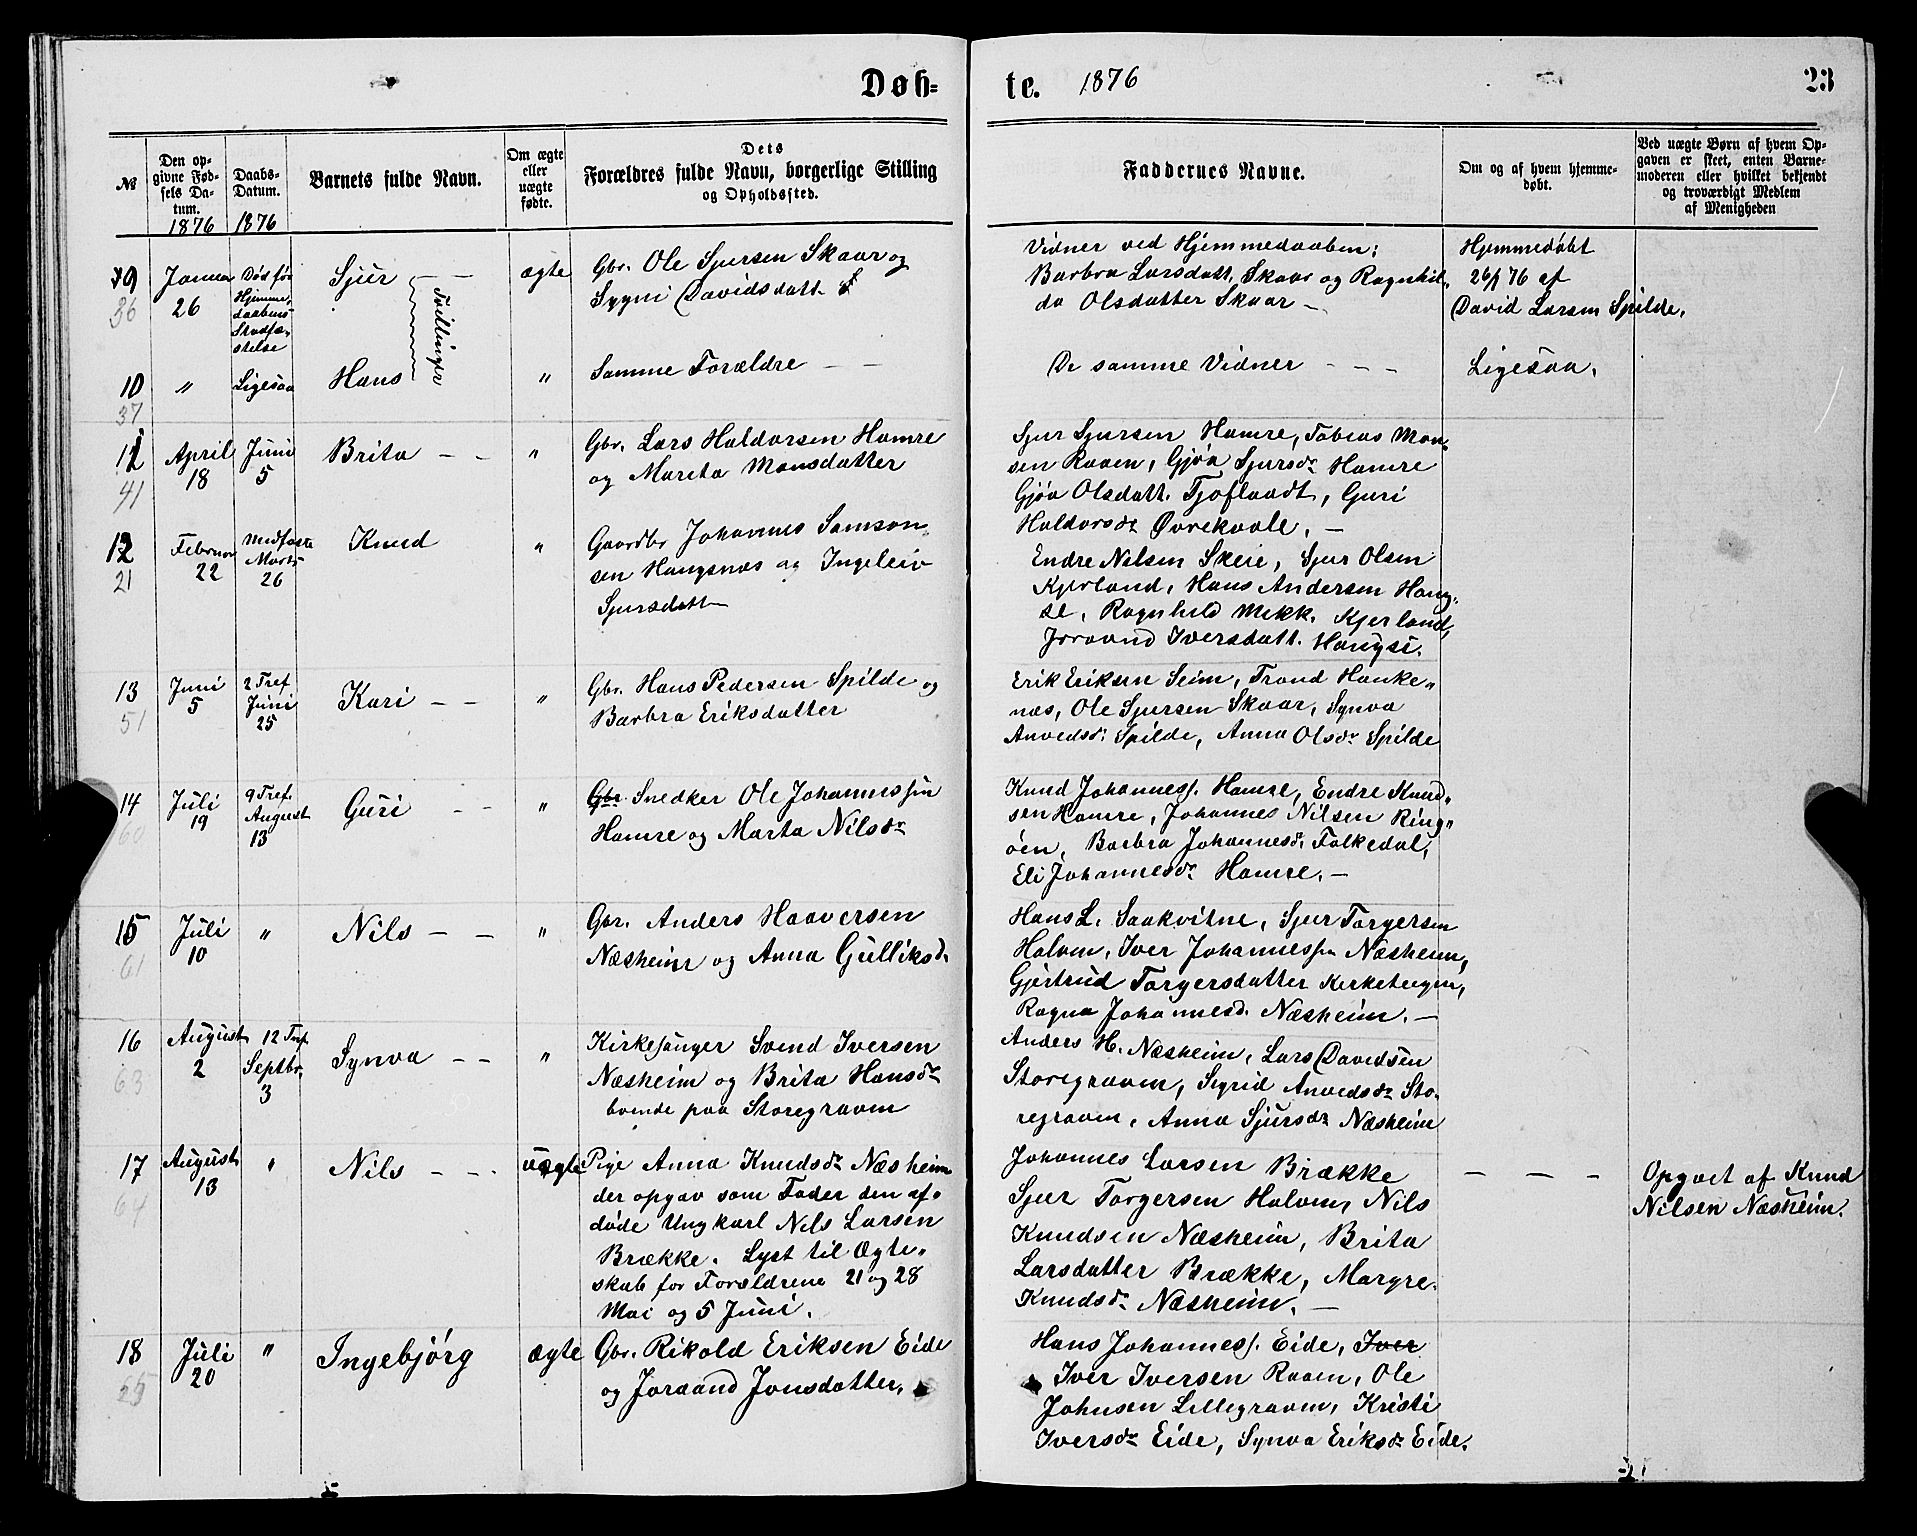 Døb=
te. 1876
23
№
Den op=
givne Fød=
sels Da=
tum.
1876
Daabs=
Datum.
1876
Barnets fulde Navn.
Om ægte
eller
uægte
fødte.
Dets
Forældres fulde Navn, borgerlige Stilling
og Opholdssted.
Faddernes Navne.
Om og af hvem hjemme=
døbt.
Ved uægte Børn af hvem Op=
gaven er skeet, enten Barne=
moderen eller hvilket bekjendt
og troværdigt Medlem
af Menigheden
9
36
Januar
26
Død før
Hjemme=
daabens
Stadfæ=
stelse
Sjur — —
Tvillinger
ægte
Gbr. Ole Sjursen Skaar og
Sygni Davidsdatt.
Vidner ved Hjemmedaaben:
Barbra Larsdatt. Skaar og Ragnhil=
da Olsdatter Skaar —
Hjemmedøbt
26/1 76 af
David Larsen Spilde.
10
37
"
Ligesaa
Hans
"
Samme Forældre — —
De samme Vidner — — —
Ligesaa.
11
41
April
18
Juni
5
Brita — —
"
Gbr. Lars Haldorsen Hamre
og Marita Monsdatter
Sjur Sjursen Hamre, Tobias Mon=
sen Raaen, Gjøa Sjursdr Hamre
Gjøa Olsdatt. Tjoflaadt, Guri
Haldorsdr Øvrekvale. —
12
21
Februar
22
Midfaste
Marts
26
Knud
"
Gaardbr Johannes Samson
sen Hangsnæs og Ingeleiv
Sjursdatt
Endre Nilsen Skeie, Sjur Olsen
Kjerland, Hans Andersen Hang=
se, Ragnhild Mikk. Kjerland,
Joraand Iversdatt. Hangse.
13
51
Juni
5
2 Tref
Juni
25
Kari — —
"
Gbr. Hans Pedersen Spilde og
Barbra Eriksdatter
Erik Eriksen Seim, Trond Hanke=
næs, Ole Sjursen Skaar, Synva
Anvedsd. Spilde, Anna Olsdr Spilde
14
60
Juli
19
9 Tref.
August
13
Guri — —
"
Gbr Snedker Ole Johannessen
Hamre og Marta Nilsdr
Knud Johanness. Hamre, Endre Knud=
sen Hamre, Johannes Nilsen Ring=
øen, Barbra Johannesd. Folkedal,
Eli Johannesdr Hamre. —
15
61
Juli
10
"
Nils — —
"
Gbr. Anders Haaversen
Næsheim og Anna Gulliksd.
Hans L. Saakvitne, Sjur Torgersen
Halven, Iver Johannessen Næsheim,
Gjertrud Torgersdatter Kirketeigen,
Ragna Johannesd. Næsheim. —
16
63
August
2
12 Tref
Septbr.
3
Synva — —
"
Kirkesanger Svend Iversen
Næsheim og Brita Hansdr
boende paa Storegraven
Anders H. Næsheim, Lars Davidsen
Storegraven, Sigrid Anvedsdr Sto=
regraven, Anna Sjursdr Næsheim
17
64
August
13
"
Nils — — -
uægte
Pige Anna Knudsdr Næsheim
der opgav som Fader den af=
døde Ungkarl Nils Larsen
Brække. Lyst til Ægte=
skab for Forældrene 21 og 28
Mai og 5 Juni.
Johannes Larsen Brække
Sjur Torgersen Halven, Nils
Knudsen Næsheim, Brita
Larsdatter Brække, Margre.
Knudsdr Næsheim. —
— — —
Opgvet af Knud
Nilsen Næsheim.
18
65
Juli
20
"
Ingebjörg
ægte
Gbr. Rikold Eriksen Eide
og Joraand Jonsdatter.
Hans Johanness. Eide, Iver
Iver Iversen Raaen, Ole
Johnsen Lillegraven, Kristi
Iversdr Eide, Synva Eriksdr Eide.